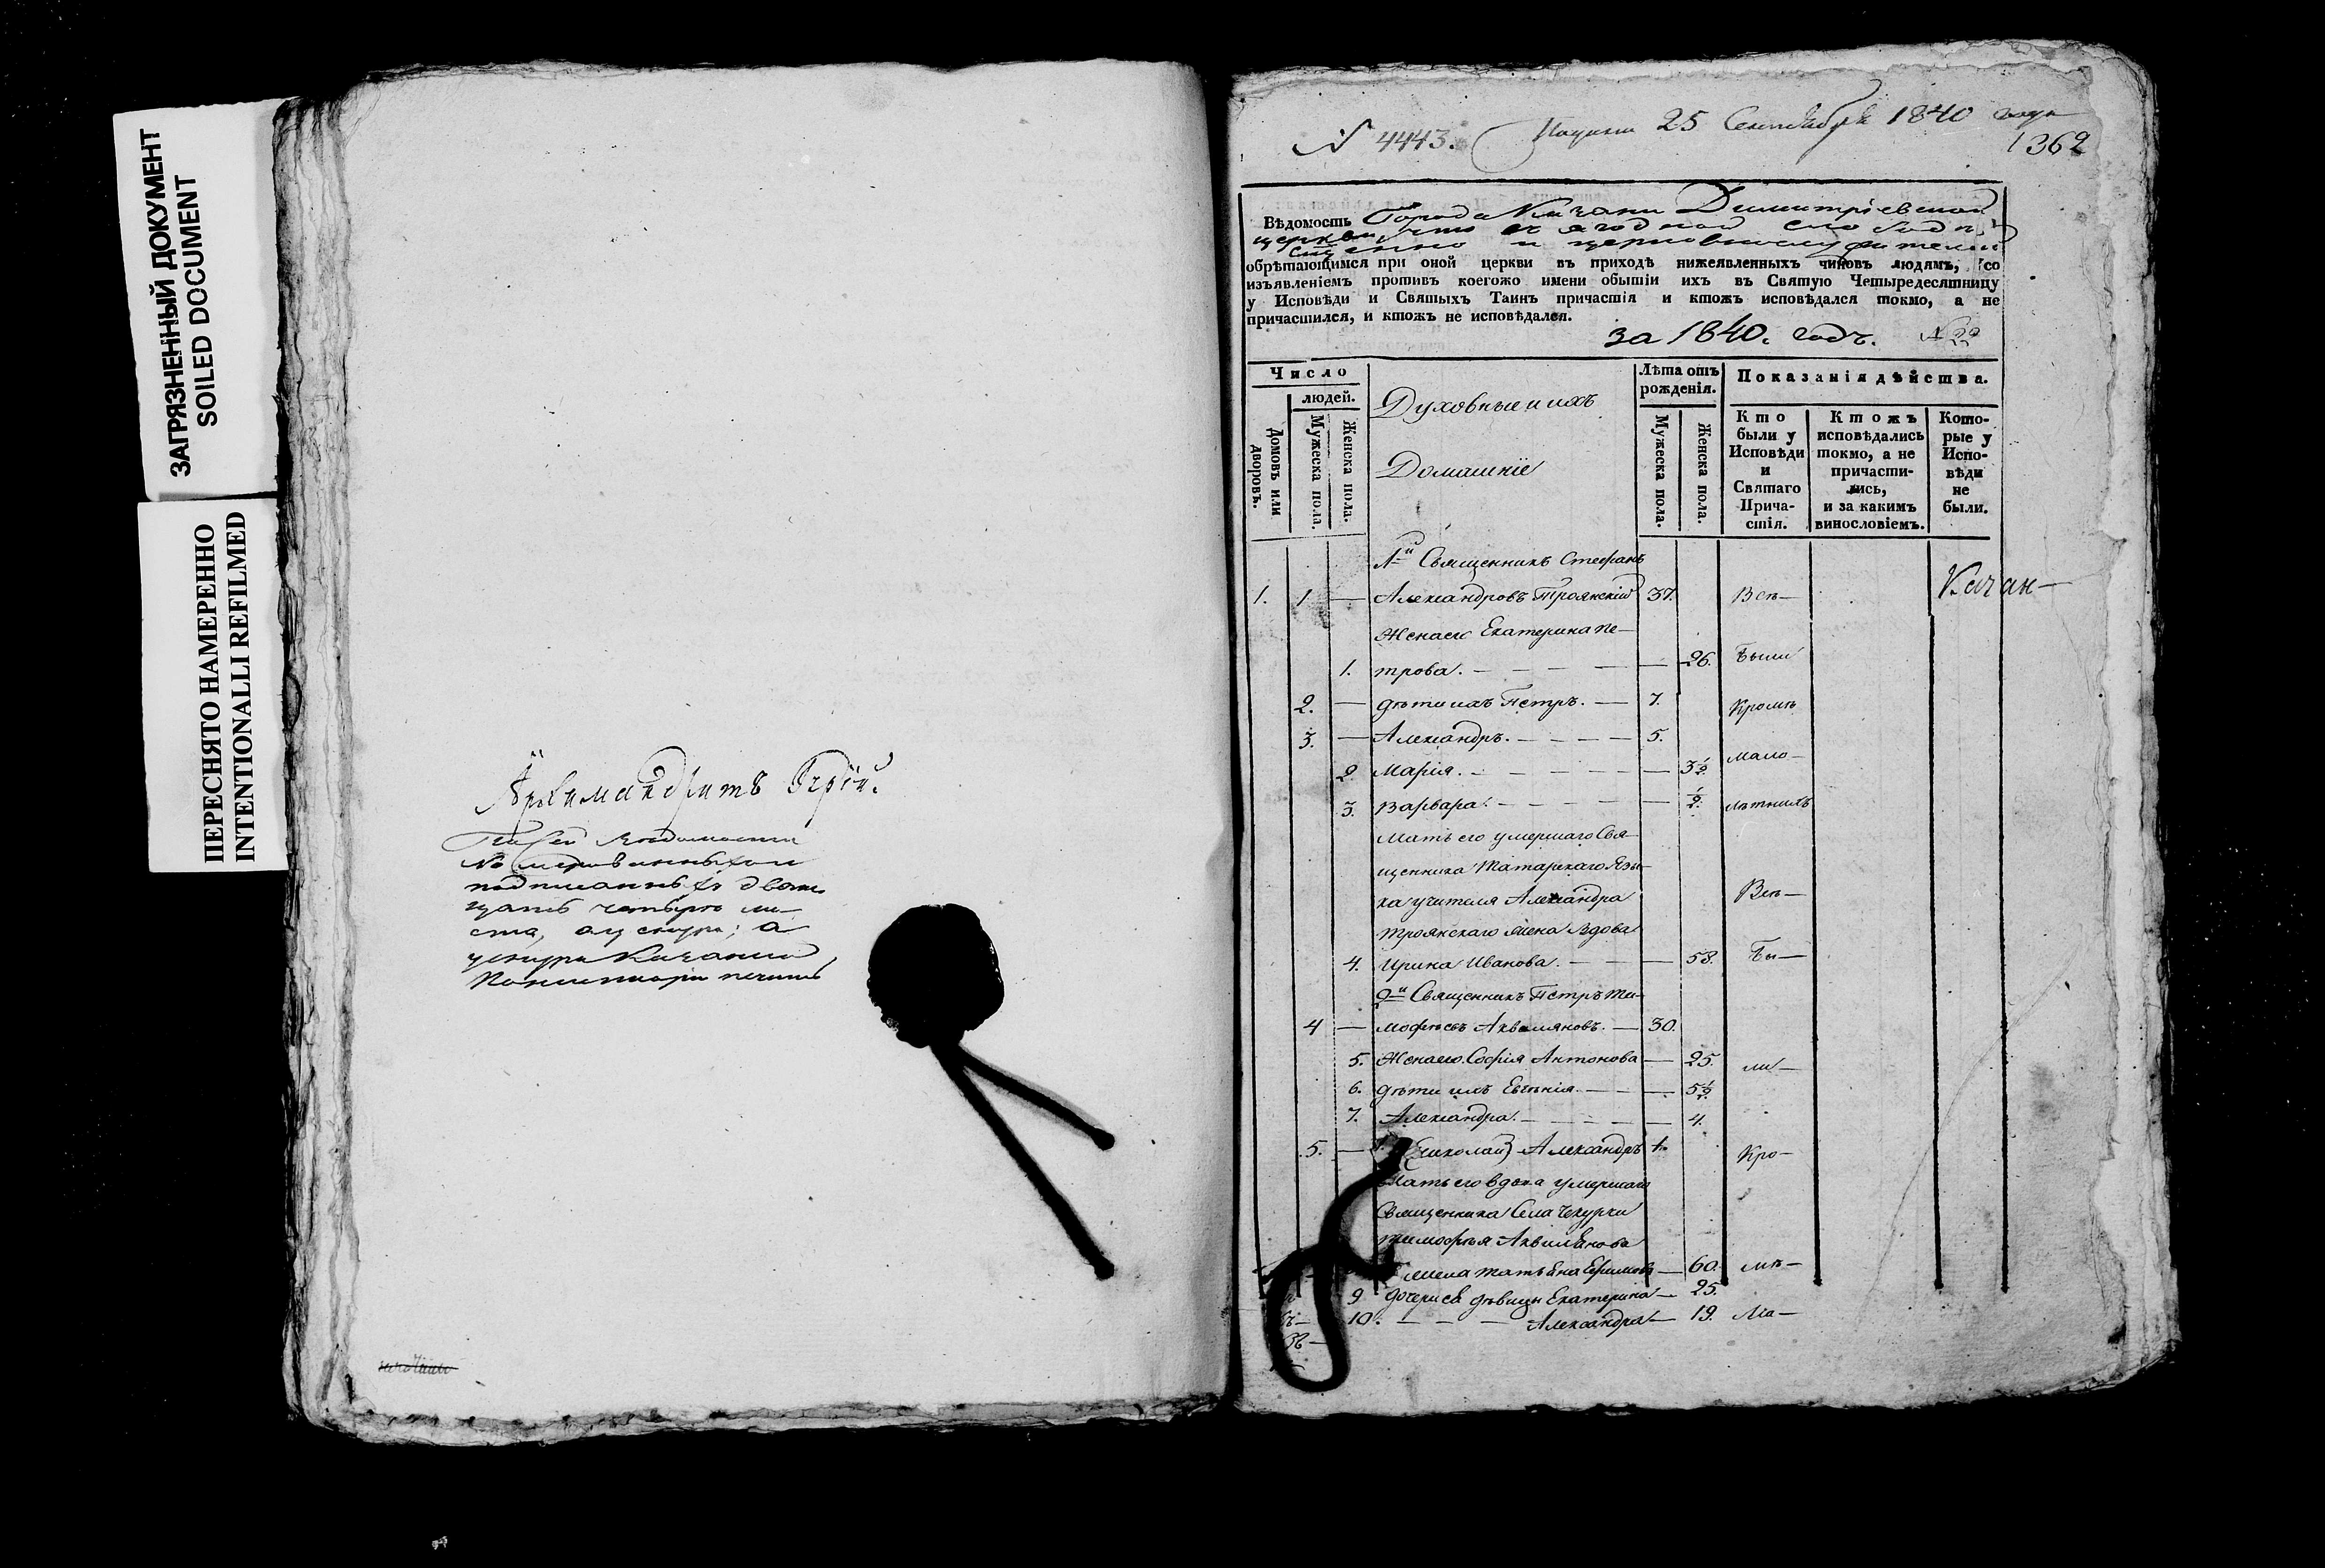 ЗАГРЯЗНЕННЫЙ ДОКУМЕНТ
SOILED DOCUMENT
ПЕРЕСНЯТО НАМЕРЕННО
INTENTIONALLI REFILMED
Архимандритъ
ведомости
подписанныхъ
четыре ли-
ста, а
у Казанской
печать
№ 4443. 25 Сентября 1840 года
1362
Вѣдомость Города Казани Димитріевской
церкви, что въ Ягодной слободѣ
обрѣтающимся при оной церкви въ приходѣ нижеявленныхъ чиновъ людямъ, со
изъявленіемъ противъ коегожо имени обытіи ихъ въ Святую Четыредесятницу
у Исповѣди и Святыхъ Таинъ причастія и ктожъ исповѣдался токмо, а не
причастился, и ктожъ не исповѣдался.
за 1840. годъ. №22
Число
людей.
Домовъ или дворовъ.
Мужеска пола.
Женска пола.
Духовные и ихъ
Домашніе
Лѣта отъ рожденія.
Мужеска пола.
Женска пола.
Показанія дѣйства.
Кто были у Исповѣди и Святаго Прича-стія.
Ктожъ исповѣдались токмо, а не причасти-лись, и за какимъ винословіемъ.
Кото-рые у Испо-вѣди не были.
1й Священникъ Стефанъ
1. 1 — Александровъ Троянскій 37. Всѣ— Казан—
Жена его Екатерина Пе—
1. трова. — — — — — 26. Были
2. — дѣти ихъ Петръ. — 7. Кромѣ
3. — Александръ. — — — — 5.
2. Марія. — — — — — 3½ мало—
3. Варвара. — — — — — ½. лѣтнихъ
Мать его умершаго Свя—
щенника Татарскаго Язы—
ка учителя Александра Всѣ—
Троянскаго жена вдова
4. Ирина Иванова. — — — 58. Бы—
2й Священникъ Петръ Ти—
4 — мофѣевъ Аквиляновъ. — 30.
5. Жена его София Антонова — 25. ли—
6. дѣти ихъ Евгенія. — — — 5½
7. Александра. — — — — — 4.
5. — Николай Александръ 1. Кро—
Мать его вдова умершаго
Священника Села Чекурчи
Тимофѣя Аквилянова
жена Татьяна Ефимова — 60. мѣ—
9. дочери ея дѣвицы Екатерина — 25.
10. — — — Александра — 19. Ма—